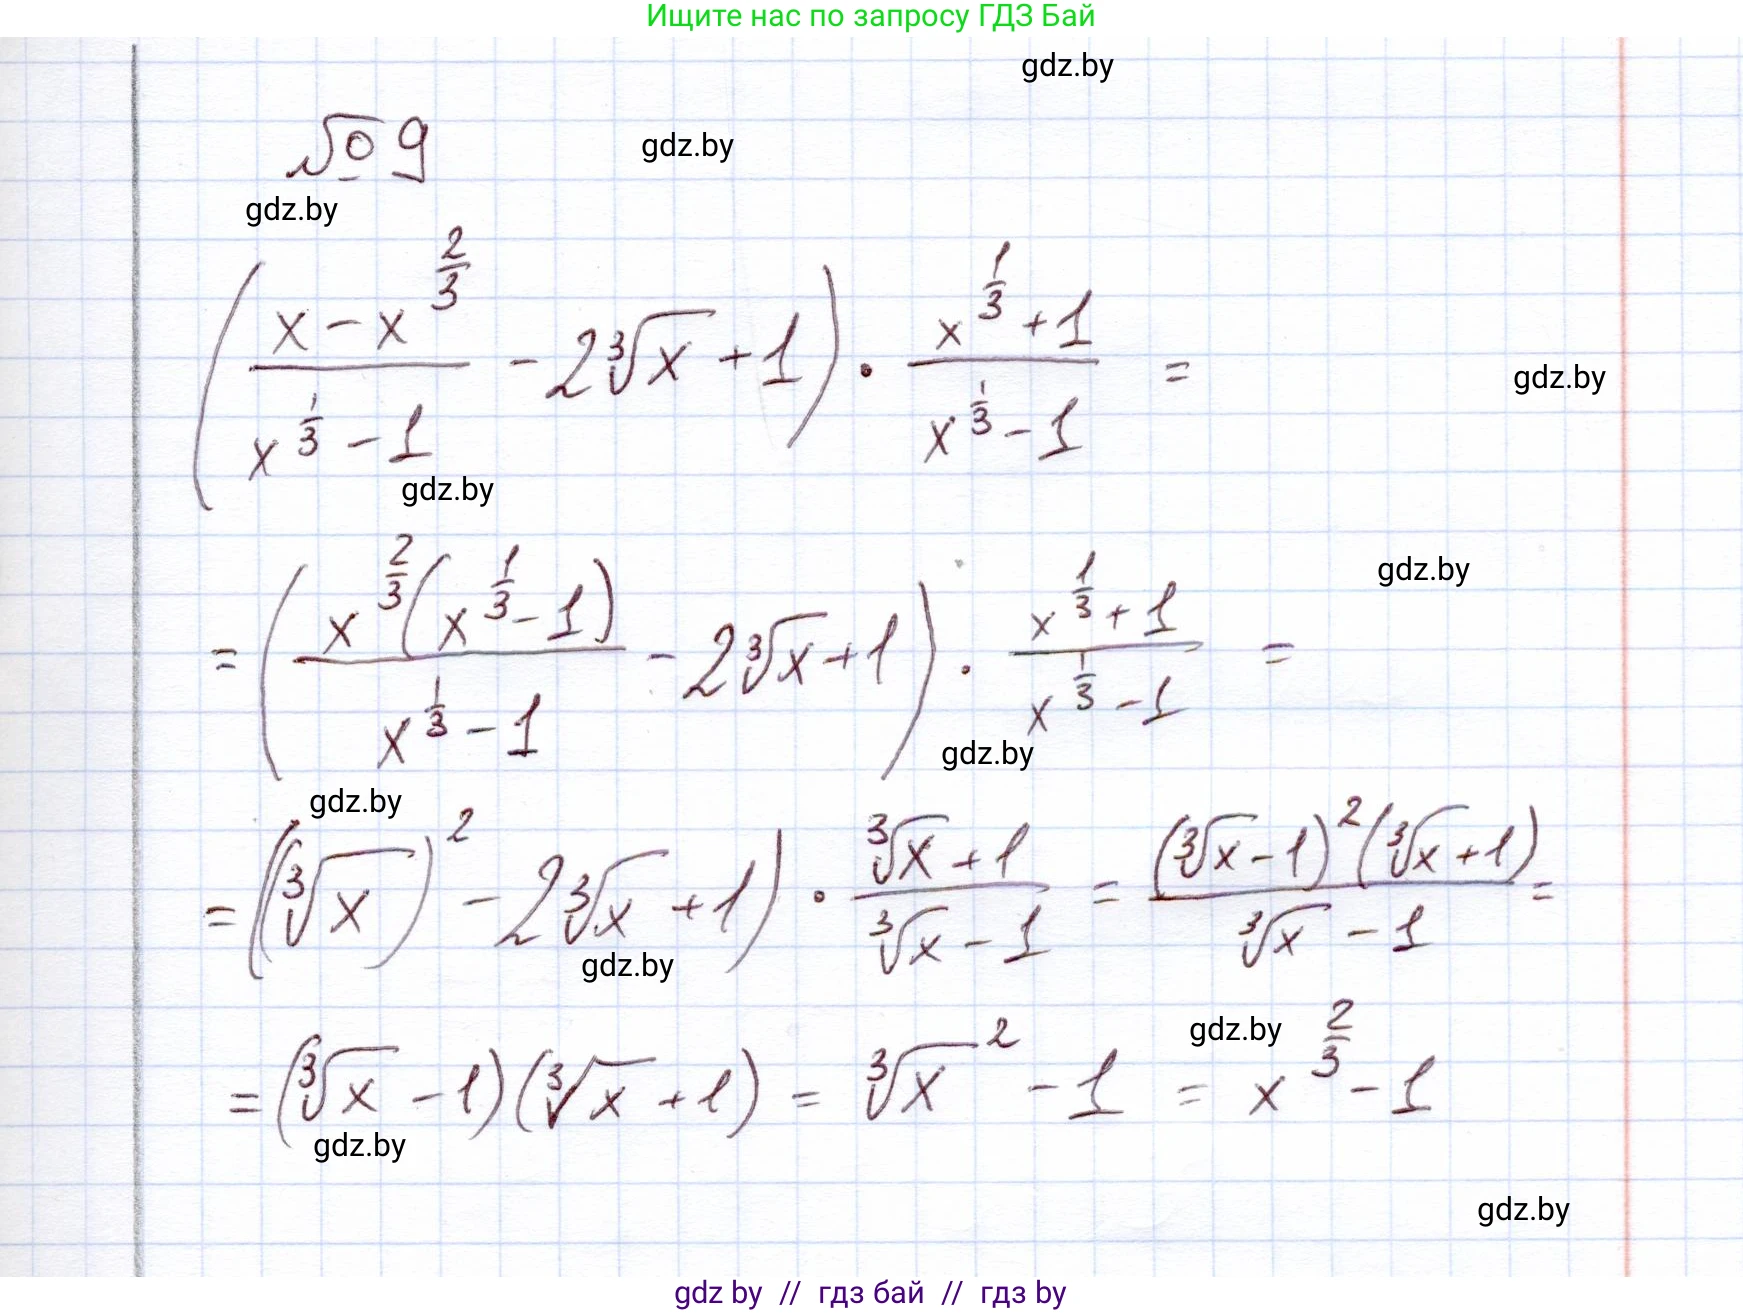 Ищите нас по запросу ГДЗ Бай
gdz.by
№ 9
gdz.by
gdz.by
(x - x^(2/3) / x^(1/3) - 1 - 2∛x + 1) · x^(1/3) + 1 / x^(1/3) - 1 =
gdz.by
gdz.by
= (x^(2/3)(x^(1/3) - 1) / x^(1/3) - 1 - 2∛x + 1) · x^(1/3) + 1 / x^(1/3) - 1 =
gdz.by
gdz.by
gdz.by
= ((∛x)² - 2∛x + 1) · ∛x + 1 / ∛x - 1 = (∛x - 1)²(∛x + 1) / ∛x - 1 =
gdz.by
gdz.by
= (∛x - 1)(∛x + 1) = ∛x² - 1 = x^(2/3) - 1
gdz.by
gdz.by
gdz by // гдз бай // гдз by